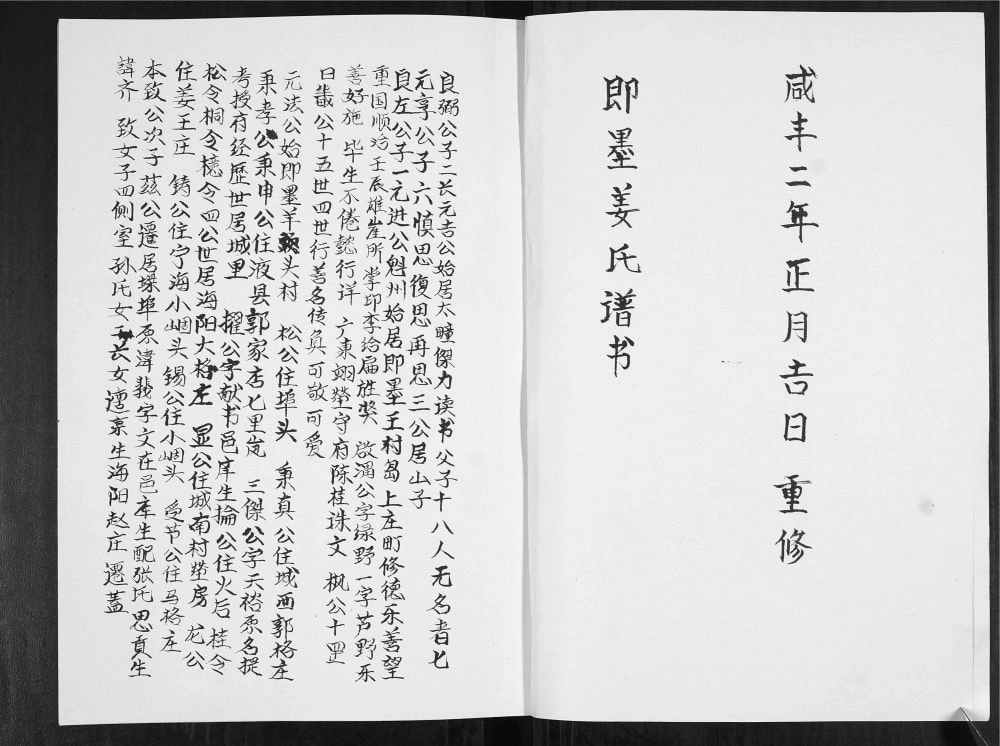 咸丰二年正月吉日重修
即墨姜氏谱书
良弼公子二长元吉公始居太疃傑力读书父子十八人无名者七
元享公子六慎思復思再思三公居山子
良左公子一元进公魁州始居即墨王村岛上庄町修德乐善望
重国顺治壬辰雄崖所掌印李给扁旌奖 啟渭公字绿野一字芦野乐
善好施 毕生不倦懿行详 广东翊荣守府陈桂珠文 枫公十里
曰 公十五世四世行善名传真可敬可爱
元法公始即墨羊 头村 松公住埠头 秉真公住城西郭格庄
秉孝公秉申公住液县郭家店七里岚 三傑公字天裕原名提
考授府经歷世居城里 擢公字献书邑庠生掄公住火后 桂令
松令桐令檍令四公世居海阳大格庄 显公住城南村茔房 龙公
住姜王庄 铸公住宁海小崓头锡公住小崓头 受节公住马格庄
本致公次子兹公遷居埠原諱 字文在邑庠生配张氏思貢生
諱齐 致女子四侧室孙氏女子长女 生海阳赵庄遷蓋